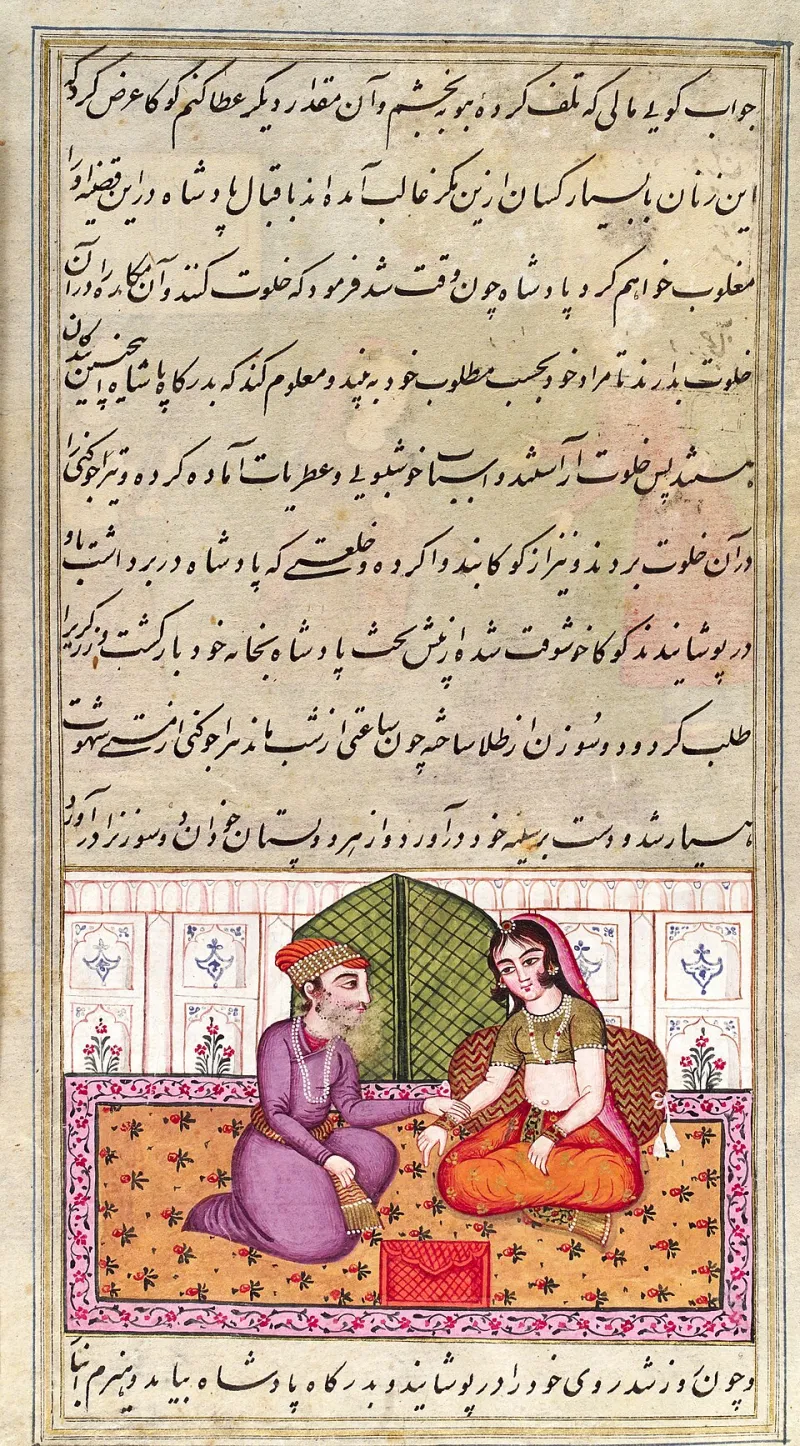 جواب کوئی مالی که تلف کرده بتو بخشم و آن مقدار دیگر عطا کنم کوکا عرض کرد که
این زنان با بسیار کسان ازین مکر غالب آمده اند باقبال پادشاه در این قضیه او را
مغلوب خواهم کرد پادشاه چون وقت شد فرمود که خلوت کنند و آن مکاره را در آن
خلوت بدارند تا مراد خود بحسب مطلوب خود به بیند و معلوم کند که بدرکاه پادشاه این چنین بندکان
هستند پس خلوت آراستند و اسباب خوشبویی و عطریات آماده کرده و جوکنی را
در آن خلوت بردند و نیز از کوکا و کرده و خلعتی که پادشاه در بر داشت باو
در پوشانیدند کوکا خوشوقت شده از پیش پادشاه بخانه خود بازگشت و زرکر را
طلب کرد و دو سوزن از طلا ساخته چون ساعتی از شب ماند جوکنی از مستی شهوت
هشیار شد و دست بر سینه خود در آورد و از هر دو پستان خود آن دو سوزن را در آورد
و چون روز شد روی خود را در پوشانید و بدرکاه پادشاه بیامد